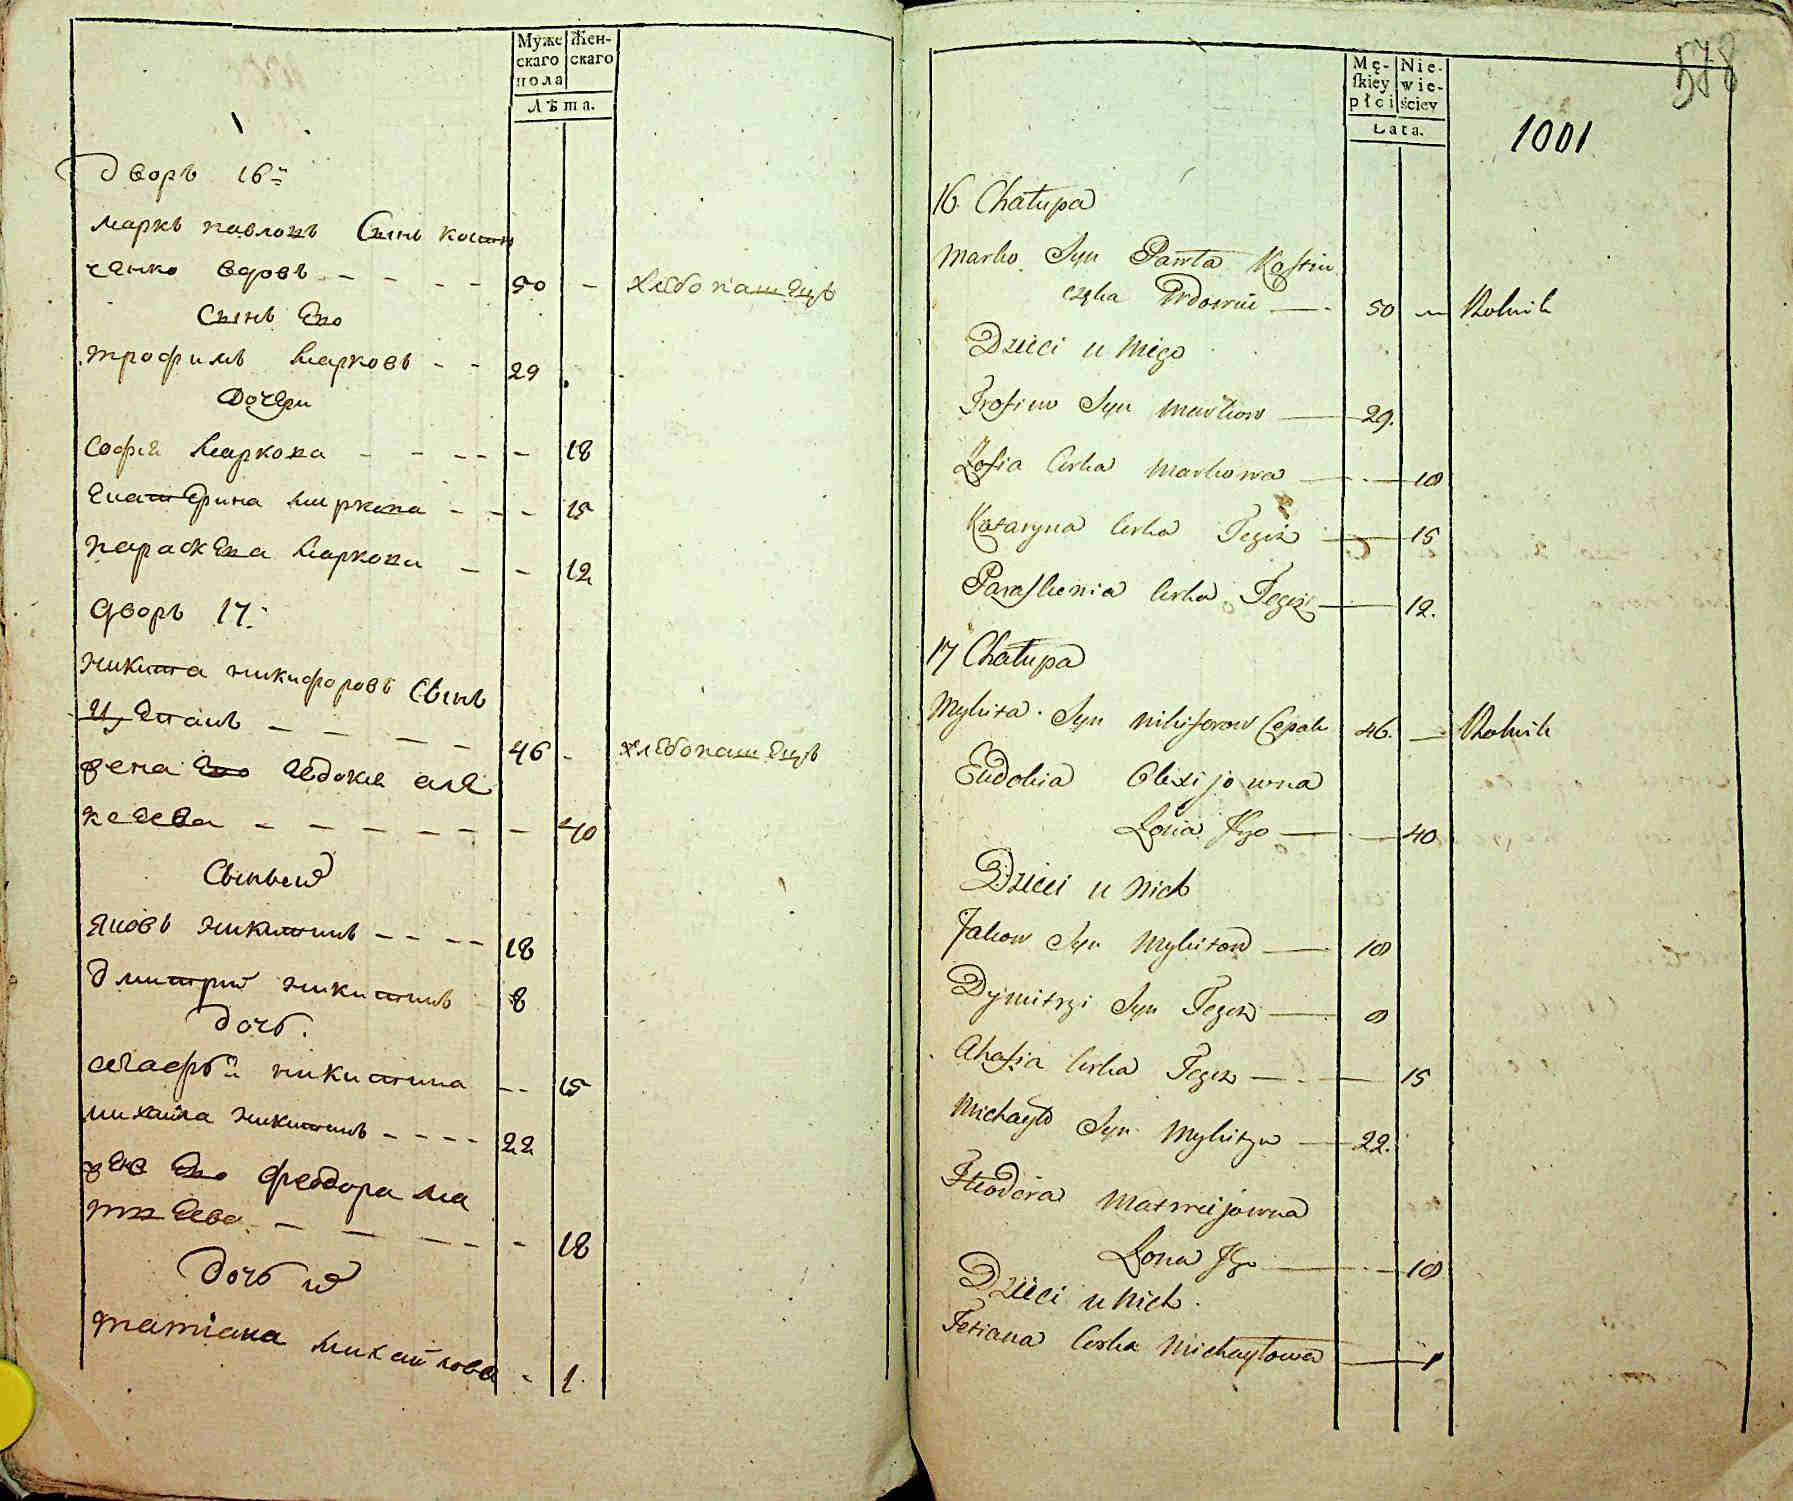 Муже
скаго
пола
Жен-
скаго
Лѣта.
Дворъ 16й
Маркъ павловъ Сынъ костю
ченко вдовъ - - - - 50 - хлебопашецъ
Сынъ Его
трофимъ Марковъ - - 29
Дочери
Софія Маркова - - - - - 18
Екатерина Маркова - - - 15
параскева Маркова - - 12
дворъ 17:
никита никифоровъ Сынъ
Цепакъ - - - - 46 - хлебопашецъ
жена Его Евдокия але
ксеева - - - - - - - 40
Сыновья
яковъ никитинъ - - - - 18
дмитрий никитинъ - 8
дочь.
агафья никитина - - 15
михайла никитинъ - - - - 22
жена Его феодора ма
твеева - - - - - - 18
дочь их
татиана Михайлова - 1
578
Mę-
skiey
płci
Nie-
wie-
ściey
Lata.
1001
16. Chałupa
Marko Syn Pawła Kostiu
częka Wdowiec — 50 — Rolnik
Dzieci u Niego
Trofim Syn Markow — 29.
Zofia Corka Markowa — 18
Katarzyna Corka Tegoż — 15
Paraskewia Corka Tegoż — 12.
17 Chałupa
Mykita Syn Nikiforow Cepak 46. — Rolnik
Eudokia Olexijowna
Żona Jego — 40
Dzieci u Nich
Jakow Syn Mykitow — 18
Dymitrzi Syn Tegoż — 8
Ahafia Corka Tegoż — 15
Michayło Syn Mykityn — 22.
Fteodora Matwiejowna
Żona Jego — 18
Dzieci u Nich.
Tetiana Corka Michayłowa — 1